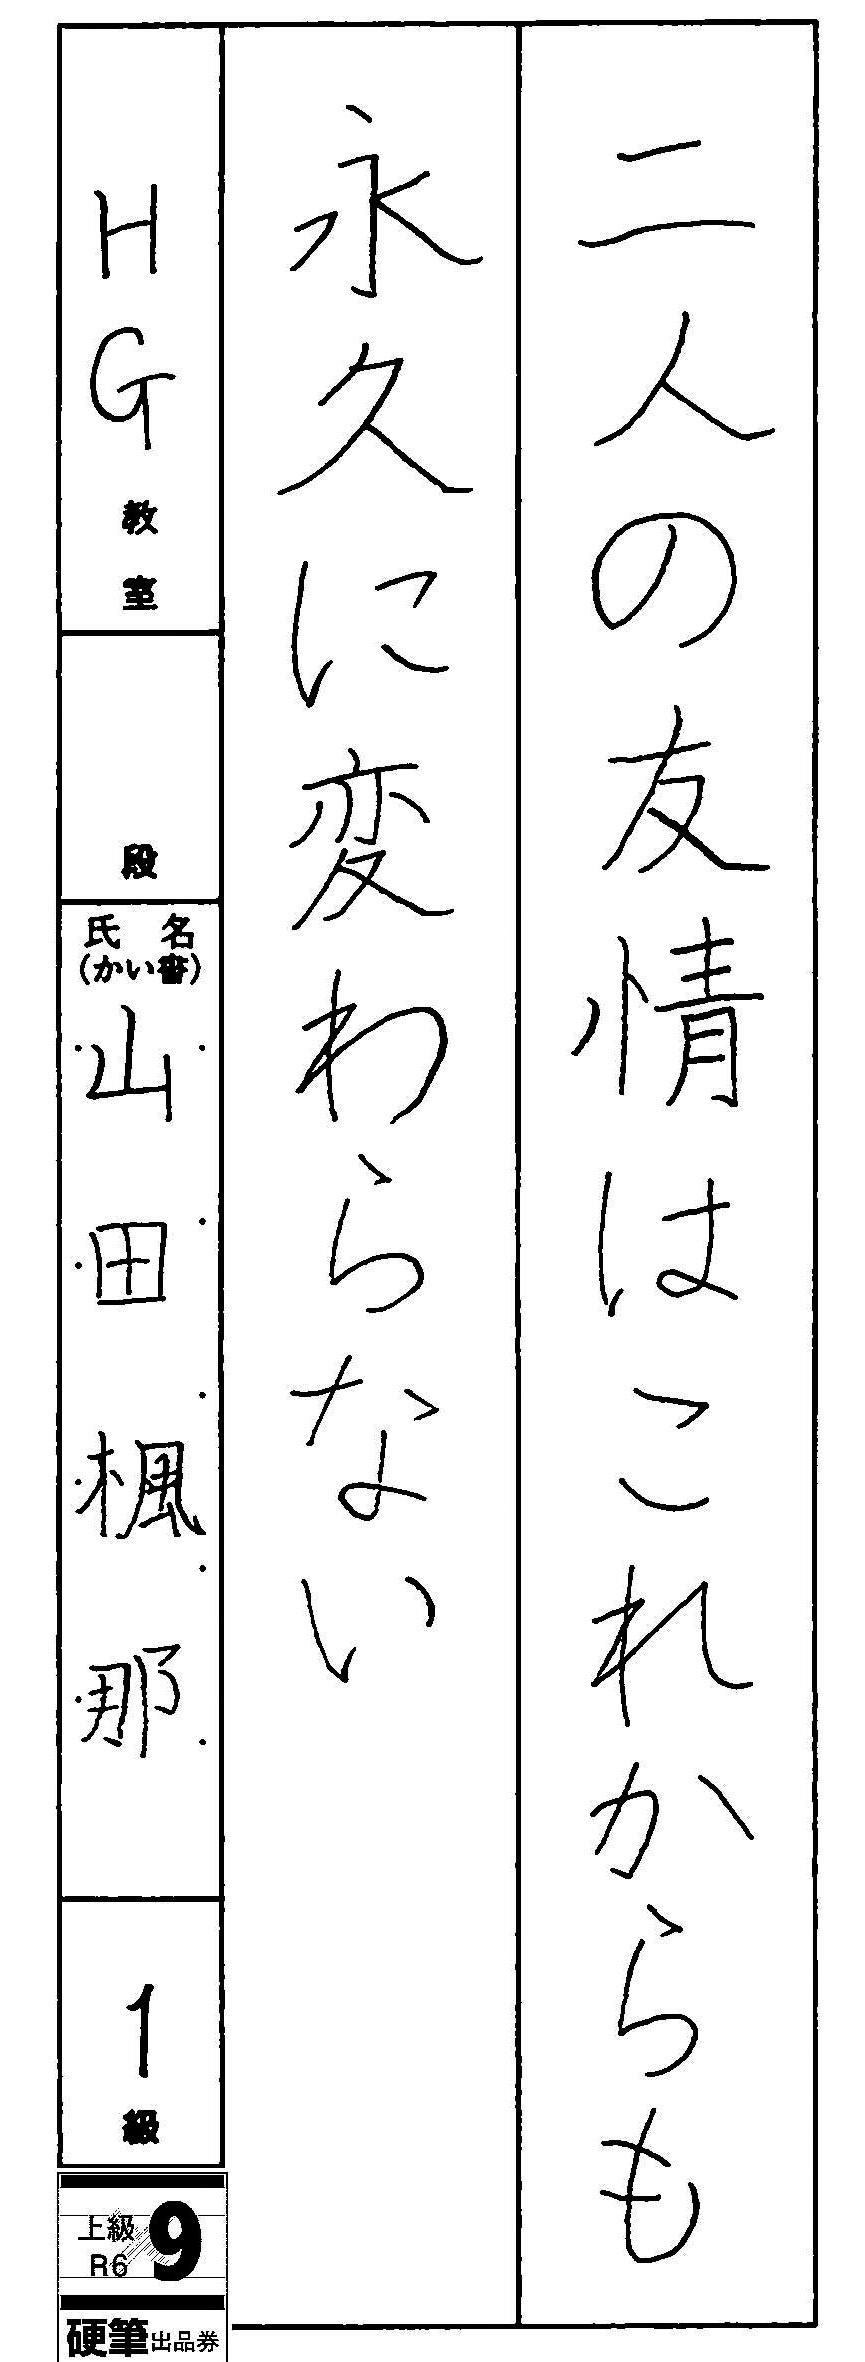 二人の友情はこれからも
永久に変わらない
HG教室
段
氏名
(かい書)
山田楓那
1級
上級
R6
9
硬筆出品券